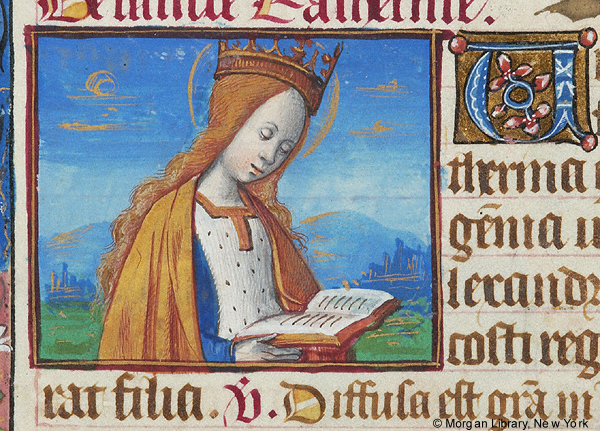 Katherine.
V
therina
gēma u
lexandr
costi reg
rat filia. V. Diffusa est gr̄a in
© Morgan Library, New York